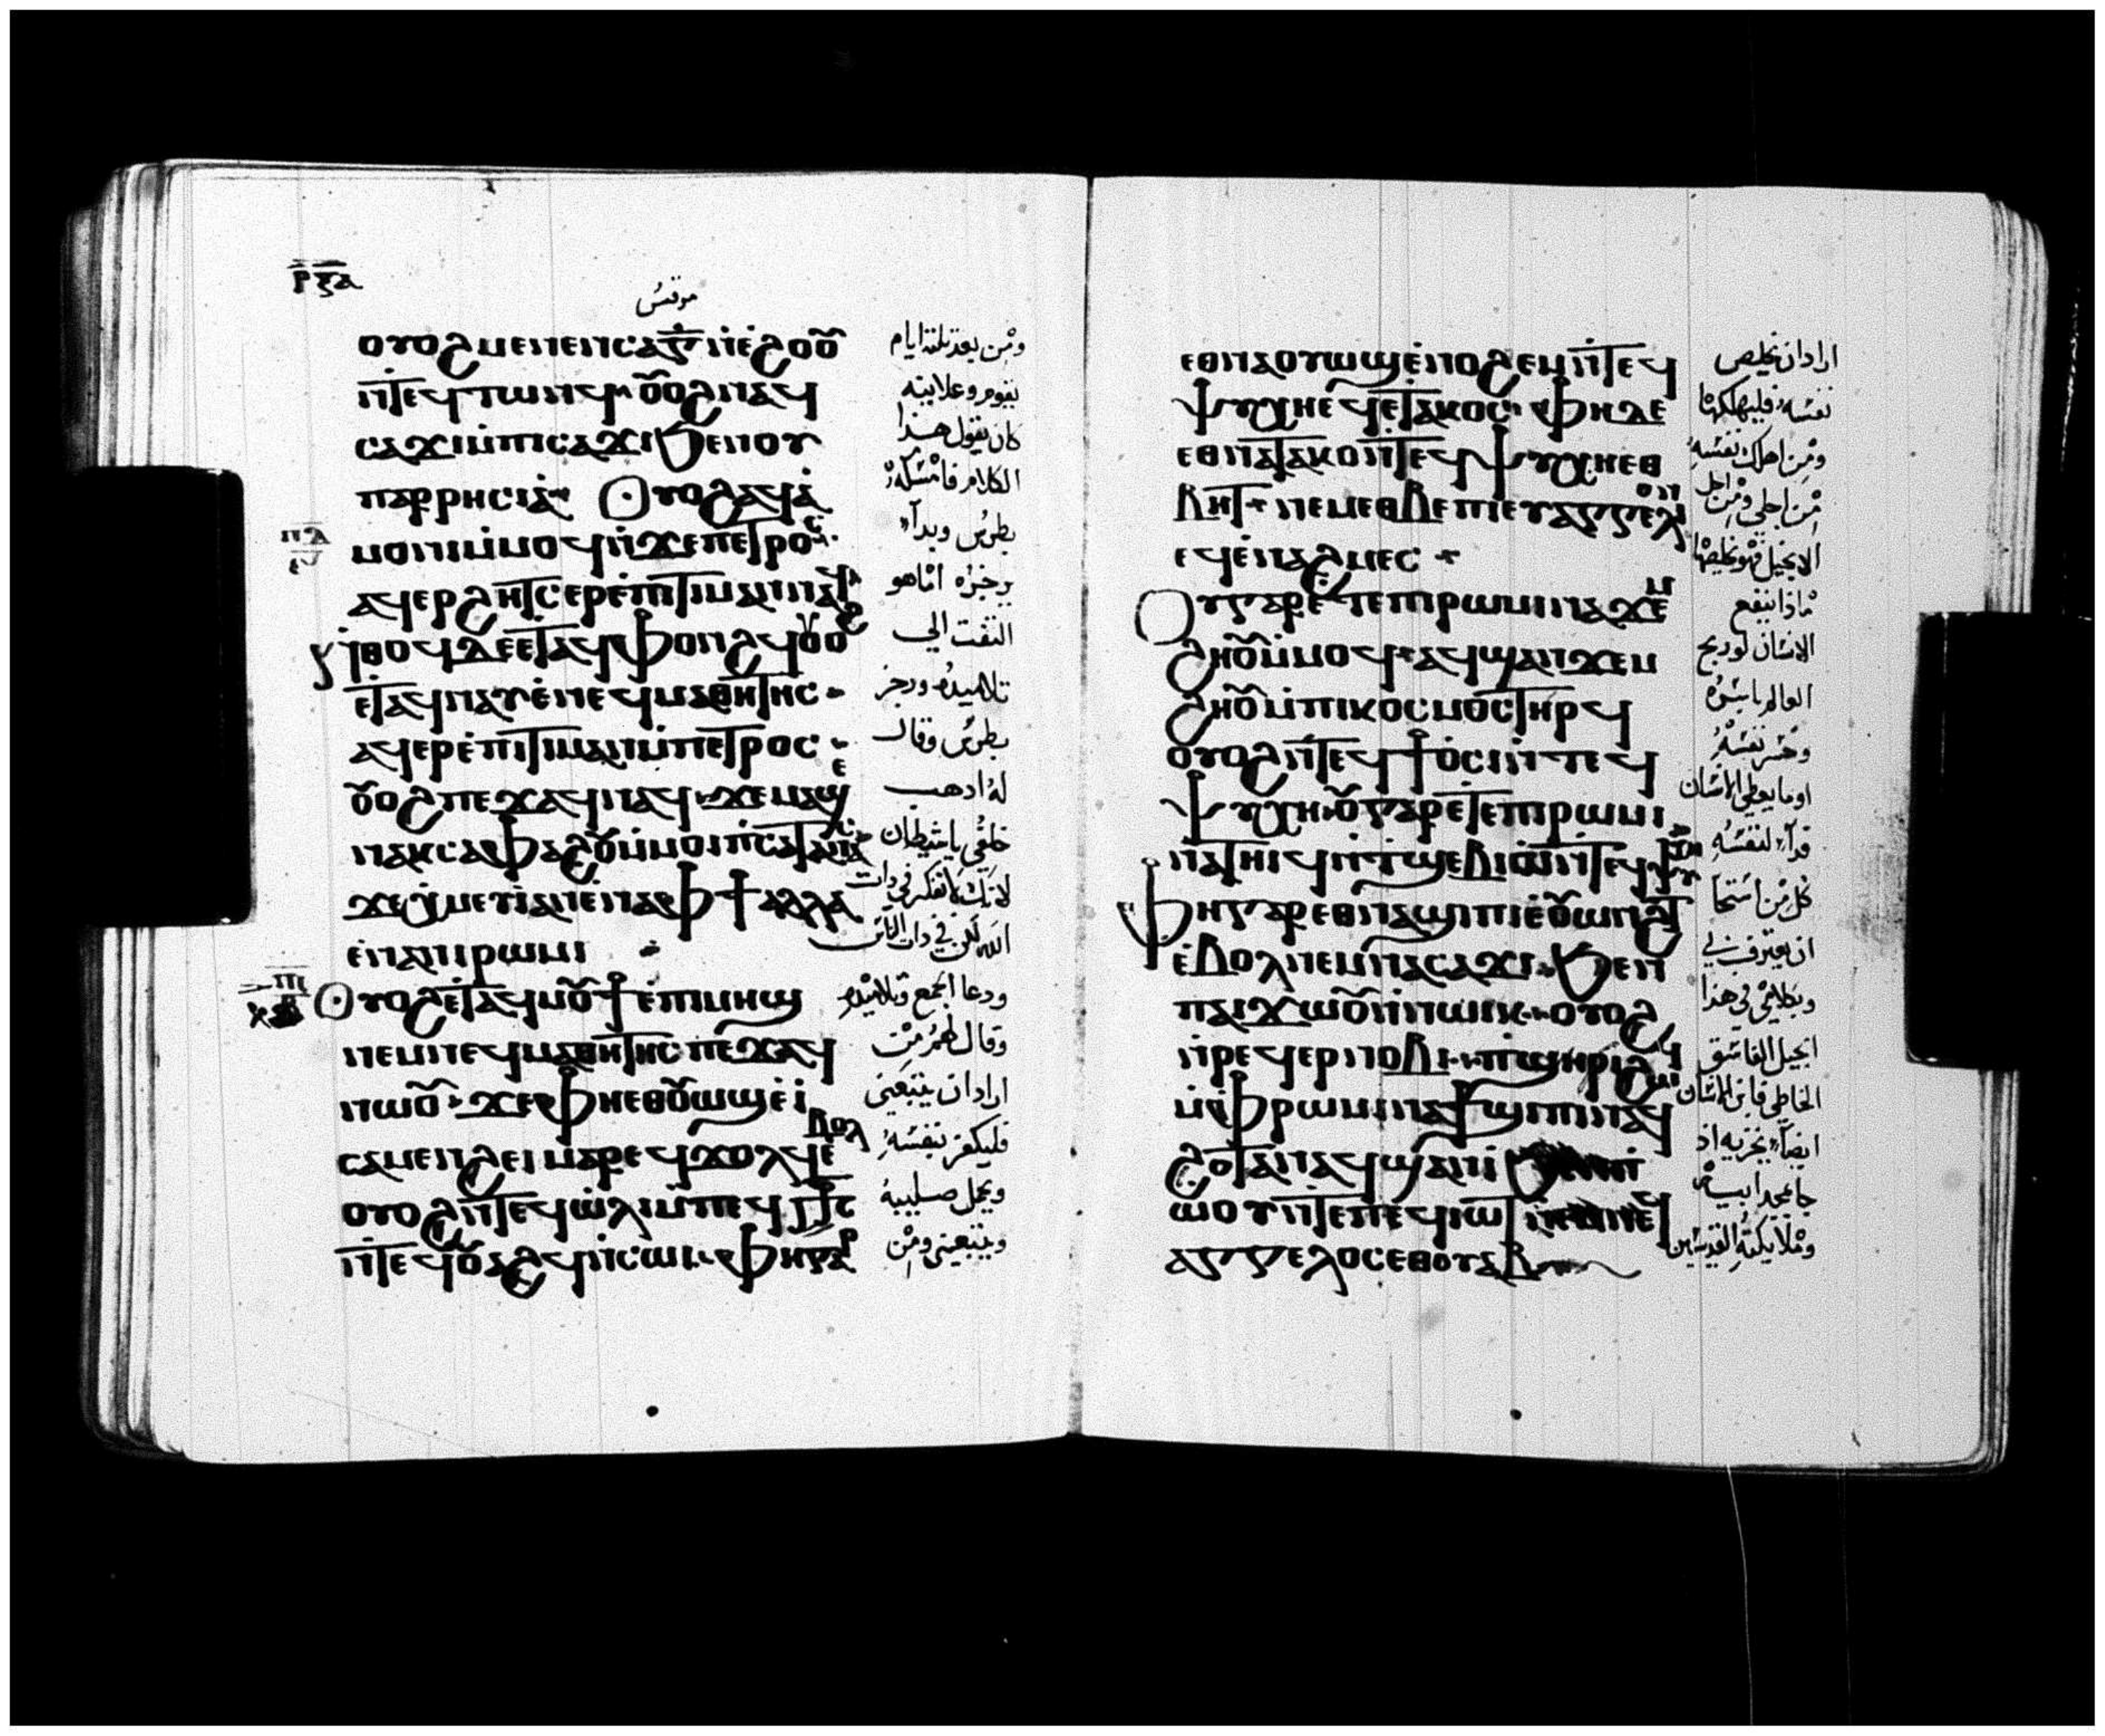 ⲣⲝⲁ
مرقس
ⲟⲩⲟϩ ⲙⲉⲛⲉⲛⲥⲁ ⲅ̅ ⲛ̀ⲉ̀ϩⲟⲟⲩ
ⲛ̀ⲧⲉϥⲧⲱⲛϥ ⲟⲩⲟϩ ⲛⲁϥ
ⲥⲁϫⲓ ⲙ̀ⲡⲓⲥⲁϫⲓ ϧⲉⲛ ⲟⲩ
ⲡⲁⲣⲣⲏⲥⲓⲁ̀ Ⲟⲩⲟϩ ⲁϥⲁ̀
ⲙⲟⲛⲓ ⲙ̀ⲙⲟϥ ⲛ̀ϫⲉ ⲡⲉⲧⲣⲟⲥ
ⲁϥⲉⲣϩⲏⲧⲥ ⲉⲣⲉ̀ⲡⲓⲧⲓⲙⲁⲛ ⲛⲁϥ
ⲛ̀ⲑⲟϥ ⲇⲉ ⲉⲧⲁϥⲫⲟⲛϩϥ ⲟⲩⲟϩ
ⲉⲧⲁϥⲛⲁⲩ ⲉ̀ⲛⲉϥⲙⲁⲑⲏⲧⲏⲥ
ⲁϥⲉⲣⲉ̀ⲡⲓⲧⲓⲙⲁⲛ ⲙ̀ⲡⲉⲧⲣⲟⲥ
ⲟⲩⲟϩ ⲡⲉϫⲁϥ ⲛⲁϥ ϫⲉ ⲙⲁϣⲉ
ⲛⲁⲕ ⲥⲁⲫⲁϩⲟⲩ ⲙ̀ⲙⲟⲓ ⲡ̀ⲥⲁⲧⲁⲛⲁⲥ
ϫⲉ ⲭ̀ⲙⲉⲩⲓ ⲁⲛ ⲉ̀ⲛⲁ ⲫϯ ⲁⲗⲗⲁ
ⲉ̀ⲛⲁ ⲛⲓⲣⲱⲙⲓ
Ⲟⲩⲟϩ ⲉⲧⲁϥⲙⲟⲩϯ ⲉ̀ⲡⲓⲙⲏϣ
ⲛⲉⲙ ⲛⲉϥⲙⲁⲑⲏⲧⲏⲥ ⲡⲉϫⲁϥ
ⲛⲱⲟⲩ ϫⲉ ⲫⲏ ⲉⲑⲟⲩⲱϣ ⲉ̀ⲓ̀
ⲥⲁⲙⲉⲛϩⲏⲓ ⲙⲁⲣⲉϥϫⲟⲗϥ ⲉ̀ⲃⲟⲗ
ⲟⲩⲟϩ ⲛ̀ⲧⲉϥⲱ̀ⲗⲓ ⲙ̀ⲡⲉϥ ⲥ̅ⲧ̅ⲥ
ⲛ̀ⲧⲉϥⲟⲩⲁϩϥ ⲛ̀ⲥⲱⲓ ⲫⲏ ⲅⲁⲣ
ومن بعد ثلثة ايام
يقوم وعلانية
كان يقول هذا
الكلام فامسكه
بطرس وبدأ
يزجره اما هو
التفت الي
تلاميذه وزجر
بطرس وقال
له اذهب
خلفي يا شيطان
لانك لا تفكر في ذات
الله لكن في ذات الناس
ودعا الجمع وتلاميذه
وقال لهم من
اراد ان يتبعني
فليكفر بنفسه
ويحمل صليبه
ويتبعني ومن
ⲉⲑⲛⲁⲟⲩⲱϣ ⲉ̀ⲛⲟϩⲉⲙ ⲛ̀ⲧⲉϥ
ⲯⲩⲭⲏ ⲉϥⲉ̀ⲧⲁⲕⲟⲥ ⲫⲏ ⲇⲉ
ⲉⲑⲛⲁⲧⲁⲕⲟ ⲛ̀ⲧⲉϥⲯⲩⲭⲏ ⲉⲑ
ⲃⲏⲧ ⲛⲉⲙ ⲉⲑⲃⲉ ⲡⲓⲉⲩⲁⲅⲅⲉⲗⲓⲟⲛ
ⲉϥⲉ̀ⲛⲁϩⲙⲉⲥ
Ⲟⲩ ⲅⲁⲣ ⲉ̀ⲧⲉ ⲡⲓⲣⲱⲙⲓ ⲛⲁϫⲉⲙ
ϩⲏⲟⲩ ⲙ̀ⲙⲟϥ ⲁϥϣⲁⲛϫⲉⲙ
ϩⲏⲟⲩ ⲙ̀ⲡⲓⲕⲟⲥⲙⲟⲥ ⲧⲏⲣϥ
ⲟⲩⲟϩ ⲛ̀ⲧⲉϥϯⲟⲥⲓ ⲛ̀ⲧⲉϥ
ⲯⲩⲭⲏ ⲟⲩ ⲅⲁⲣ ⲉⲧⲉ ⲡⲓⲣⲱⲙⲓ
ⲛⲁⲧⲏⲓϥ ⲛ̀ⲧϣⲉⲃⲓⲱ̀ ⲛ̀ⲧⲉϥⲯⲩⲭⲏ
Ⲫⲏ ⲅⲁⲣ ⲉⲑⲛⲁϣⲓⲡⲓ ⲉ̀ⲟⲩⲱⲛϩⲧ
ⲉ̀ⲃⲟⲗ ⲛⲉⲙ ⲛⲁⲥⲁϫⲓ ϧⲉⲛ
ⲡⲁⲓϫⲱⲟⲩ ⲛ̀ⲛⲱⲓⲕ ⲟⲩⲟϩ
ⲛ̀ⲣⲉϥⲉⲣⲛⲟⲃⲓ ⲡ̀ϣⲏⲣⲓ ϩⲱϥ
ⲙ̀ⲫⲣⲱⲙⲓ ⲛⲁϯϣⲓⲡⲓ ⲛⲁϥ
ϩⲟⲧⲁⲛ ⲁϥϣⲁⲛⲓ̀ ϧⲉⲛ
ⲱⲟⲩ ⲛ̀ⲧⲉ ⲡⲉϥⲓⲱⲧ ⲛⲉⲙ ⲛⲉϥ
ⲁⲅⲅⲉⲗⲟⲥ ⲉⲑⲟⲩⲁⲃ
اراد ان يخلص
نفسه فليهلكها
ومن اهلك نفسه
من اجلي ومن اجل
الانجيل فهو يخلصها
ماذا ينفع
الانسان لو ربح
العالم باسره
وخسر نفسه
او ما يعطي الانسان
فداء لنفسه
كل من استحا
ان يعترف بي
وبكلامي في هذا
الجيل الفاسق
الخاطي فابن الانسان
ايضا يخزيه اذ
جا بمجد ابيه
وملايكته القديسين